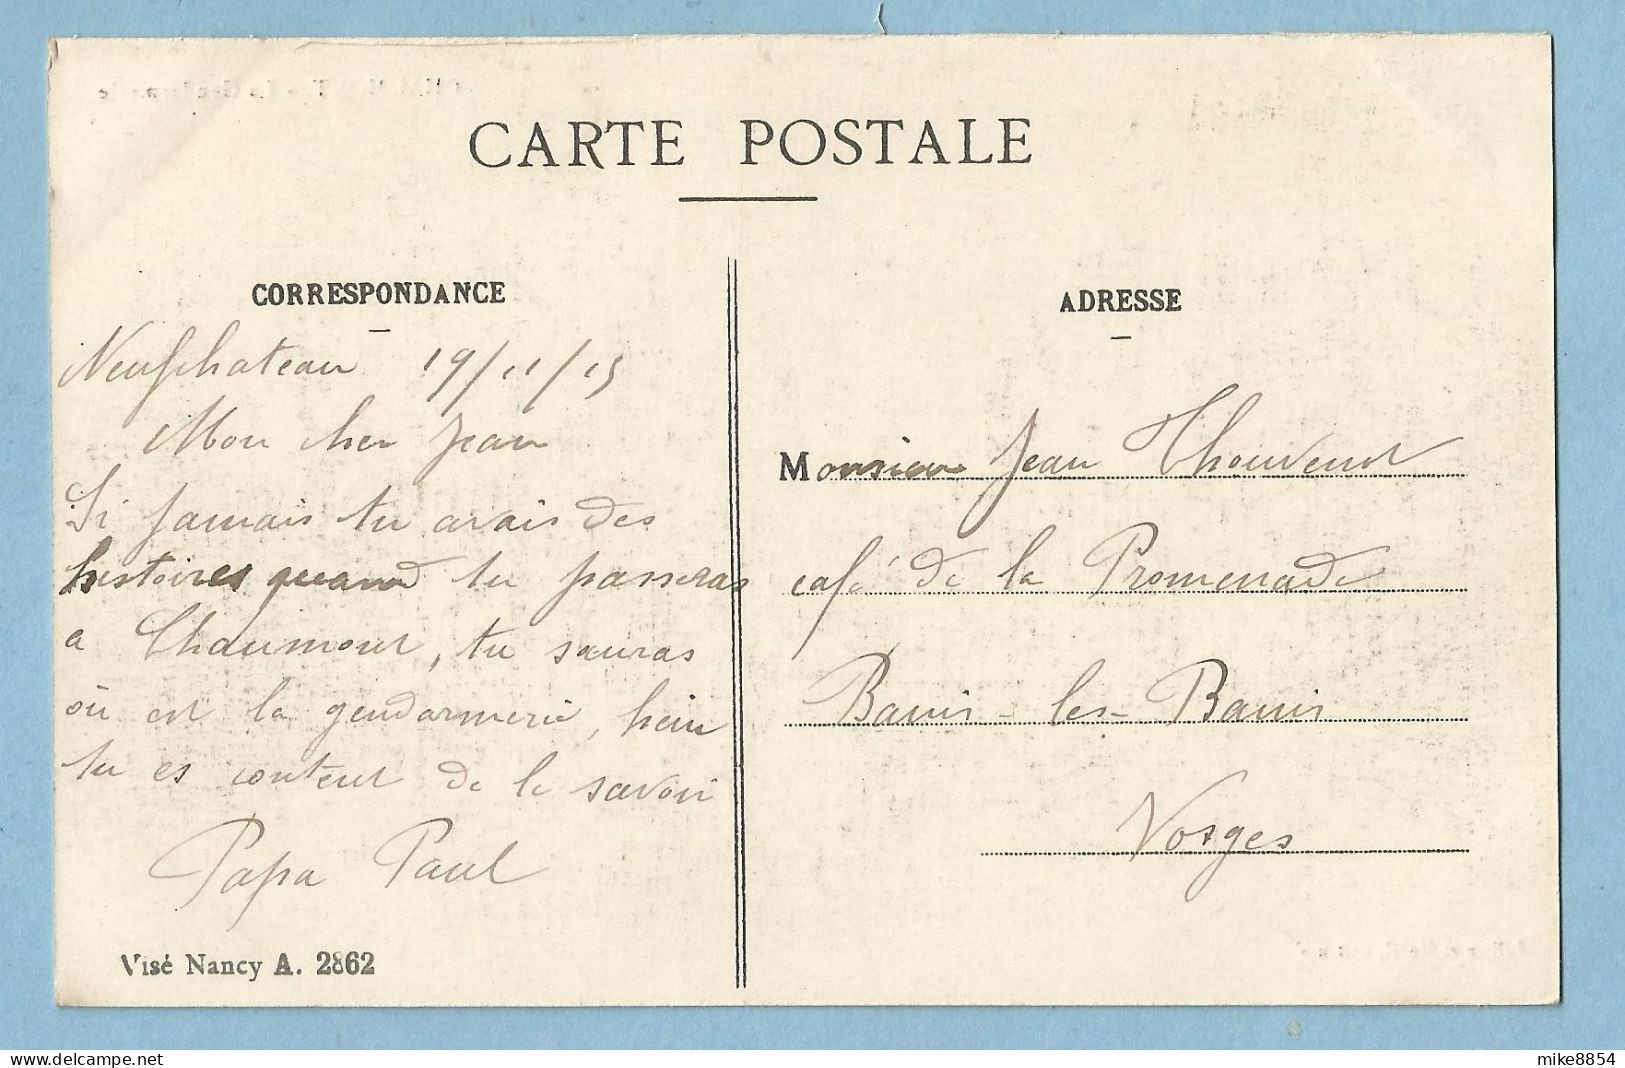 CARTE POSTALE
CORRESPONDANCE
Neufchateau 19/11/15
Mon cher Jean
Si jamais tu avais des
histoires quand tu passeras
a Chaumont, tu sauras
où est la gendarmerie, hein
tu es content de le savoir
Papa Paul
Visé Nancy A. 2862
ADRESSE
Monsieur Jean Thouvenot
café de la Promenade
Bains-les-Bains
Vosges
mike8854